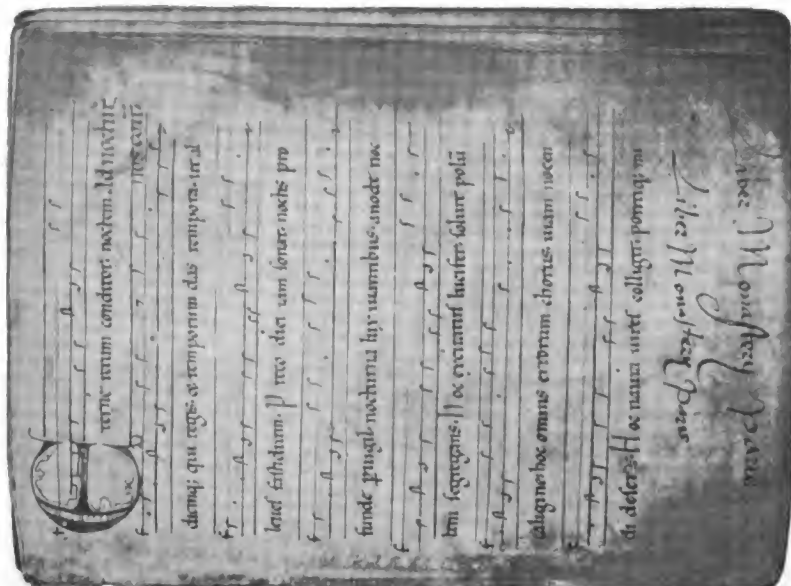 Eterne rerum conditor. noctem. Ad noctur
diemq; qui regis. et temporum das tempora. ut al
leues fastidium. Preco diei iam sonat. noctis pro
funde puigil. nocturna lux uiantibus. a nocte noc
tem segregans. Hoc excitatus lucifer. soluit polū
caligine. hoc omnis errorum chorus. uiam nocen
di deserit. Hoc nauta uires colligit. pontiq; mi
Liber Monastery
Liber Monastery